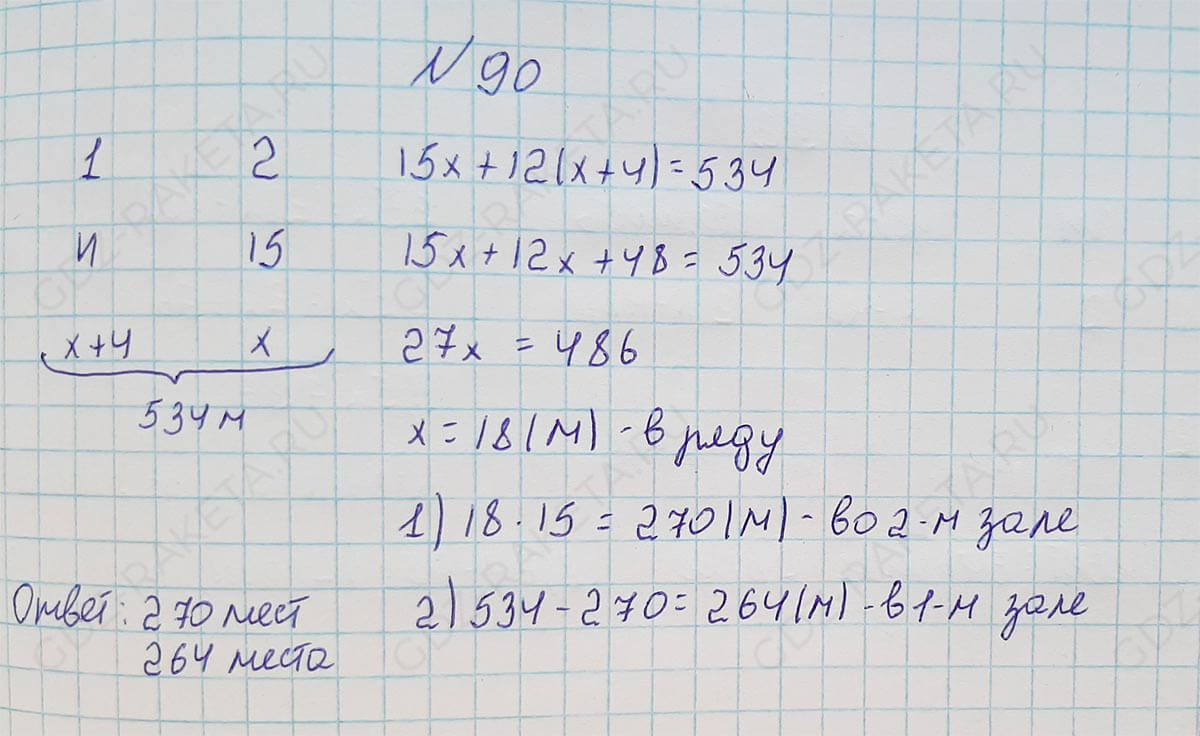 N 90
1 2
И 15
x+4 x
534 м
15x+12(x+4)=534
15x+12x+48=534
27x = 486
x=18(м) - в ряду
1) 18·15 = 270(м) - во 2-м зале
2) 534-270=264(м) - в 1-м зале
Ответ: 270 мест
264 места
GDZ-RAKETA.RU